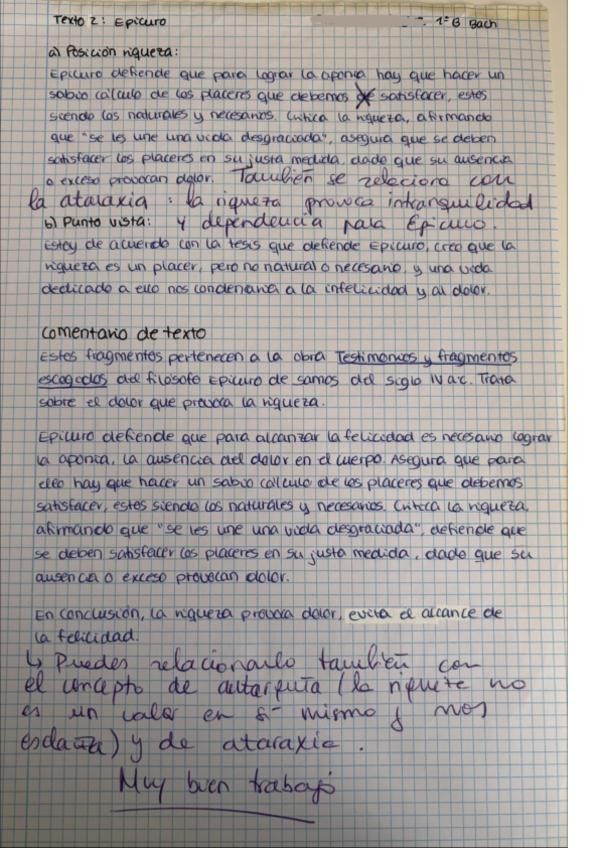 Texto 2: Epicuro
1º B Bach
a) Posición riqueza:
Epicuro defiende que para lograr la aponia hay que hacer un
sabio cálculo de los placeres que debemos satisfacer, estos
siendo los naturales y necesarios. Critica la riqueza, afirmando
que "se les une una vida desgraciada", asegura que se deben
satisfacer los placeres en su justa medida, dado que su ausencia
o exceso provocan dolor. También se relaciona con
la ataraxia: la riqueza provoca intranquilidad
y dependencia para Epicuro.
b) Punto vista:
Estoy de acuerdo con la tesis que defiende Epicuro, creo que la
riqueza es un placer, pero no natural o necesario, y una vida
dedicado a ello nos condenaría a la infelicidad y al dolor.
Comentario de texto
Estos fragmentos pertenecen a la obra Testimonios y fragmentos
escogidos del filósofo Epicuro de Samos del siglo IV a.C. Trata
sobre el dolor que provoca la riqueza.
Epicuro defiende que para alcanzar la felicidad es necesario lograr
la aponia, la ausencia del dolor en el cuerpo. Asegura que para
ello hay que hacer un sabio cálculo de los placeres que debemos
satisfacer, estos siendo los naturales y necesarios. Critica la riqueza,
afirmando que "se les une una vida desgraciada", defiende que
se deben satisfacer los placeres en su justa medida, dado que su
ausencia o exceso provocan dolor.
En conclusión, la riqueza provoca dolor, evita el alcance de
la felicidad.
↳ Puedes relacionarlo también con
el concepto de autarquía (la riqueza no
es un valor en sí mismo y nos
esclaviza) y de ataraxia.
Muy buen trabajo